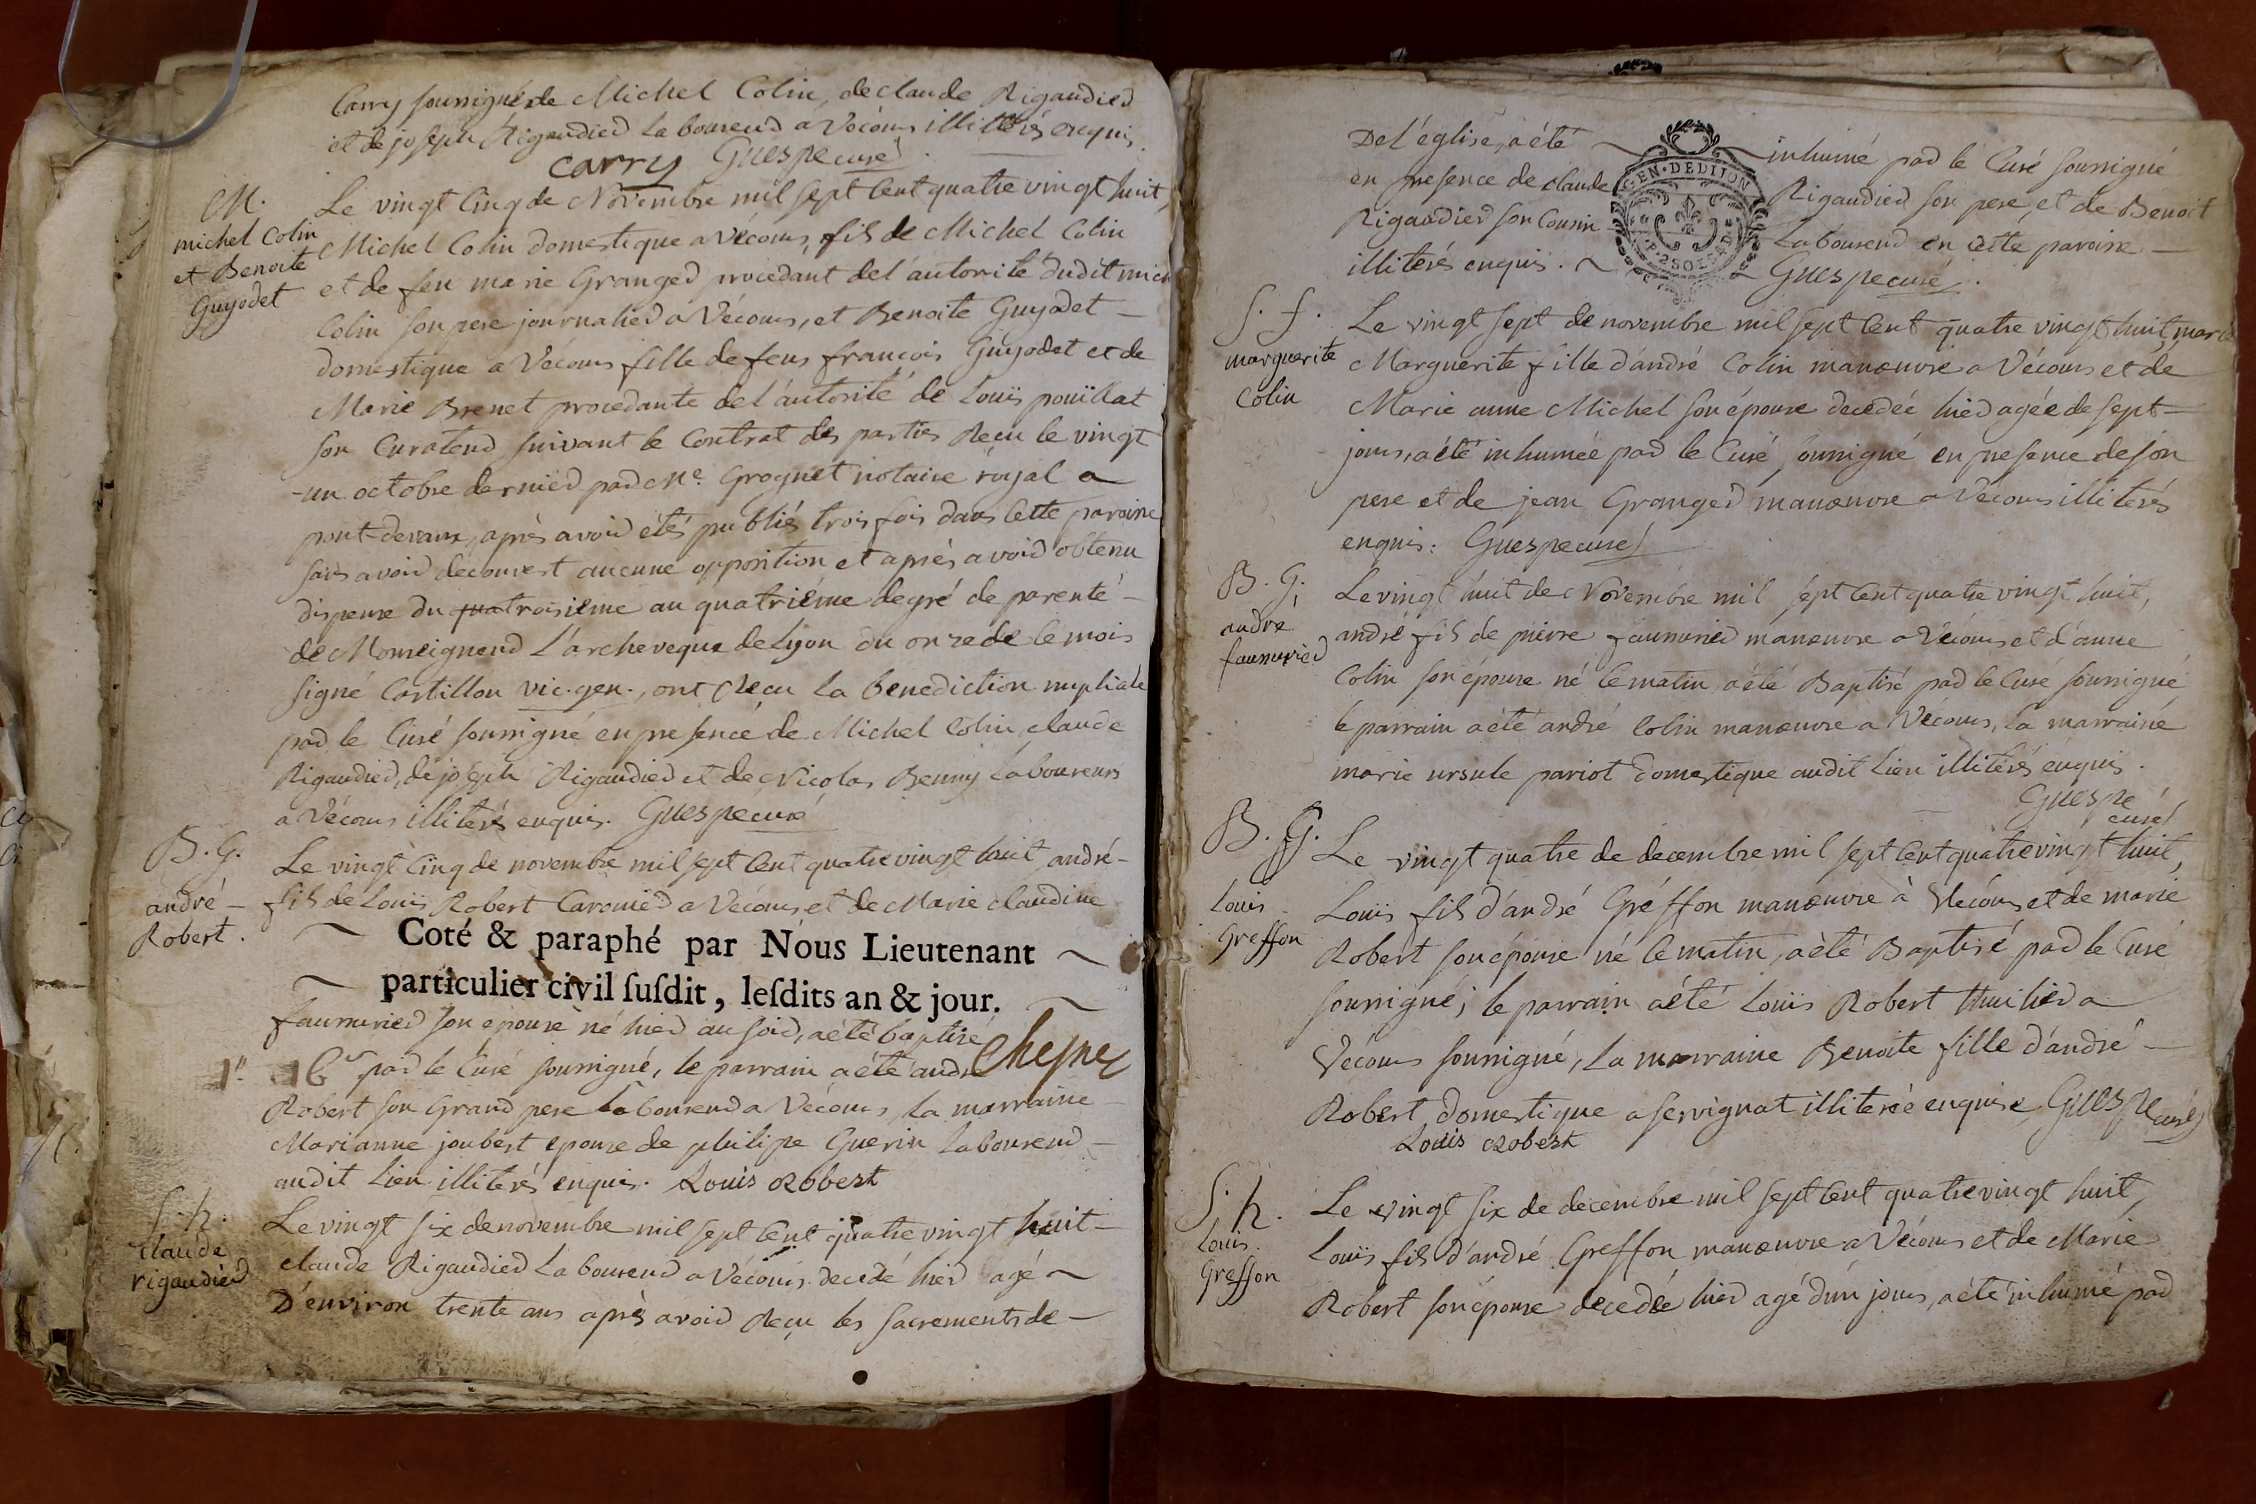 Carry soussigné de Michel Colin, de claude Rigaudier
et de joseph Rigaudier laboureur a Vécours illitérés enquis.
carry Guespe curé
M.
michel Colin
et Benoite
Guyodet
Le vingt cinq de Novembre mil sept cent quatre vingt huit,
Michel Colin domestique a Vécours, fils de Michel Colin
et de feu marie Granger procedant de l'autorité dudit
Colin son pere journalier a Vécours, et Benoite Guyodet —
domestique a Vécours fille de feus françois Guyodet et de
Marie Brenet procedante de l'autorité de Louis pouillat
son Curateur suivant le Contrat des parties Recu le vingt
-un octobre dernier par Me. Grognet notaire royal a
pont-devaux, après avoir étés publiés trois fois dans Cette paroisse
sans avoir decouvert aucune opposition et après avoir obtenu
dispense du troisieme au quatrième degré de parenté —
de Monseigneur L'archeveque de Lyon du onze de le mois
signé Castillon vic. gen., ont Recu la benediction nuptiale
par le Curé soussigné en presence de Michel Colin, claude
Rigaudier, de joseph Rigaudier et de Nicolas Benny laboureurs
a Vécours illitérés enquis. Guespe curé
B. G.
andré —
Robert.
Le vingt Cinq de novembre mil sept cent quatre vingt huit andré —
fils de Louis Robert a Vécours, et de Marie claudine
~ Coté & paraphé par Nous Lieutenant ~
~ particulier civil ſuſdit, leſdits an & jour. ~
faussurier son epouse né hier au soir, a été baptisé
par le Curé soussigné, le parrain a été andré Chesne
Robert son Grand pere laboureur a Vécours, la marraine —
Marianne joubert epouse de philipe Guerin laboureur —
audit lieu illitérés enquis. Louis Robert
S. h.
Claude
rigaudier
Le vingt six de novembre mil sept cent quatre vingt huit —
claude Rigaudier laboureur a Vécours decedé hier agé ~
D'environ trente ans après avoir Recu les sacrements de —
De l'église, a été ~ ~ inhumé par le Curé soussigné
en presence de claude Rigaudier son pere, et de Benoit
Rigaudier son Cousin Laboureur en cette paroisse —
illiterés enquis. ~ ~ Guespe curé.
GEN. DE DIJON
S. f.
marguerite
Colin
Le vingt sept de novembre mil sept cent quatre vingt huit,
Marguerite fille d'andré Colin manœuvre a Vécours et de
Marie anne Michel son épouse decedeé hier agée de sept —
jours, a été inhumée par le Curé soussigné en presence de son
pere et de jean Granger manœuvre a Vécours illiterés
enquis: Guespe curé
B. G.
andré
faussurier
Le vingt huit de Novembre mil sept cent quatre vingt huit,
andré fils de pierre faussurier manœuvre a Vécours et d'anne
Colin son épouse né le matin, a été Baptisé par le Curé soussigné
le parrain a été andré Colin manœuvre a Vécours, la marraine
marie ursule pariot domestique audit lieu illitérés enquis.
Guespe
curé
B. G.
Louis
Greffon
Le vingt quatre de decembre mil sept cent quatre vingt huit,
Louis fils d'andré Greffon manœuvre à Vécours et de marie
Robert son épouse né le matin, a été Baptisé par le Curé
soussigné; le parrain a été Louis Robert thuilier a
Vécours soussigné, la marraine Benoite fille d'andré —
Robert domestique a servignat illiterée enquise. Guespe curé
Louis Robert
S. h.
Louis
Greffon
Le vingt six de decembre mil sept cent quatre vingt huit,
Louis fils d'andré Greffon manœuvre a Vécours et de Marie
Robert son épouse decedée hier agé d'un jour, a été inhumé par